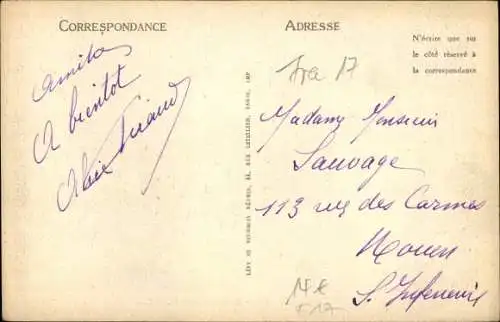 CORRESPONDANCE
ADRESSE
N'écrire que sur
le côté réservé à
la correspondance
A bientôt
Fra 17
Madame Monsieur
Sauvage
113 rue des Carmes
Rouen
S. Inférieure
LÉVY ET NEURDEIN RÉUNIS, 44, RUE LETELLIER, PARIS, IMP
14 €